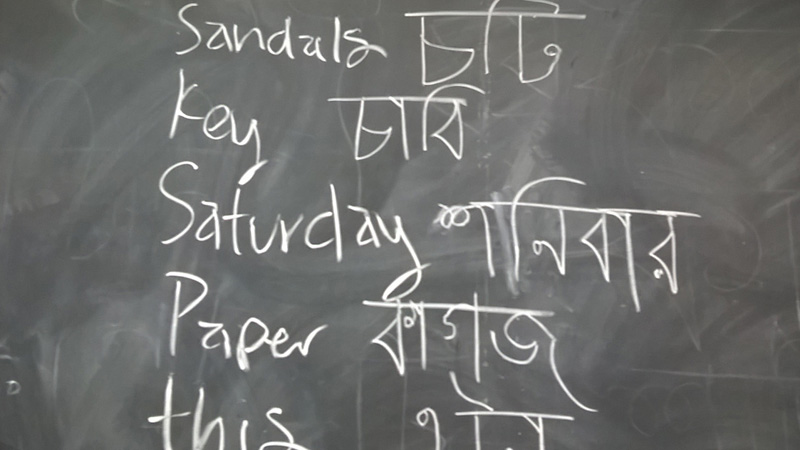 Sandals চটি
Key চাবি
Saturday শনিবার
Paper কাগজ
this